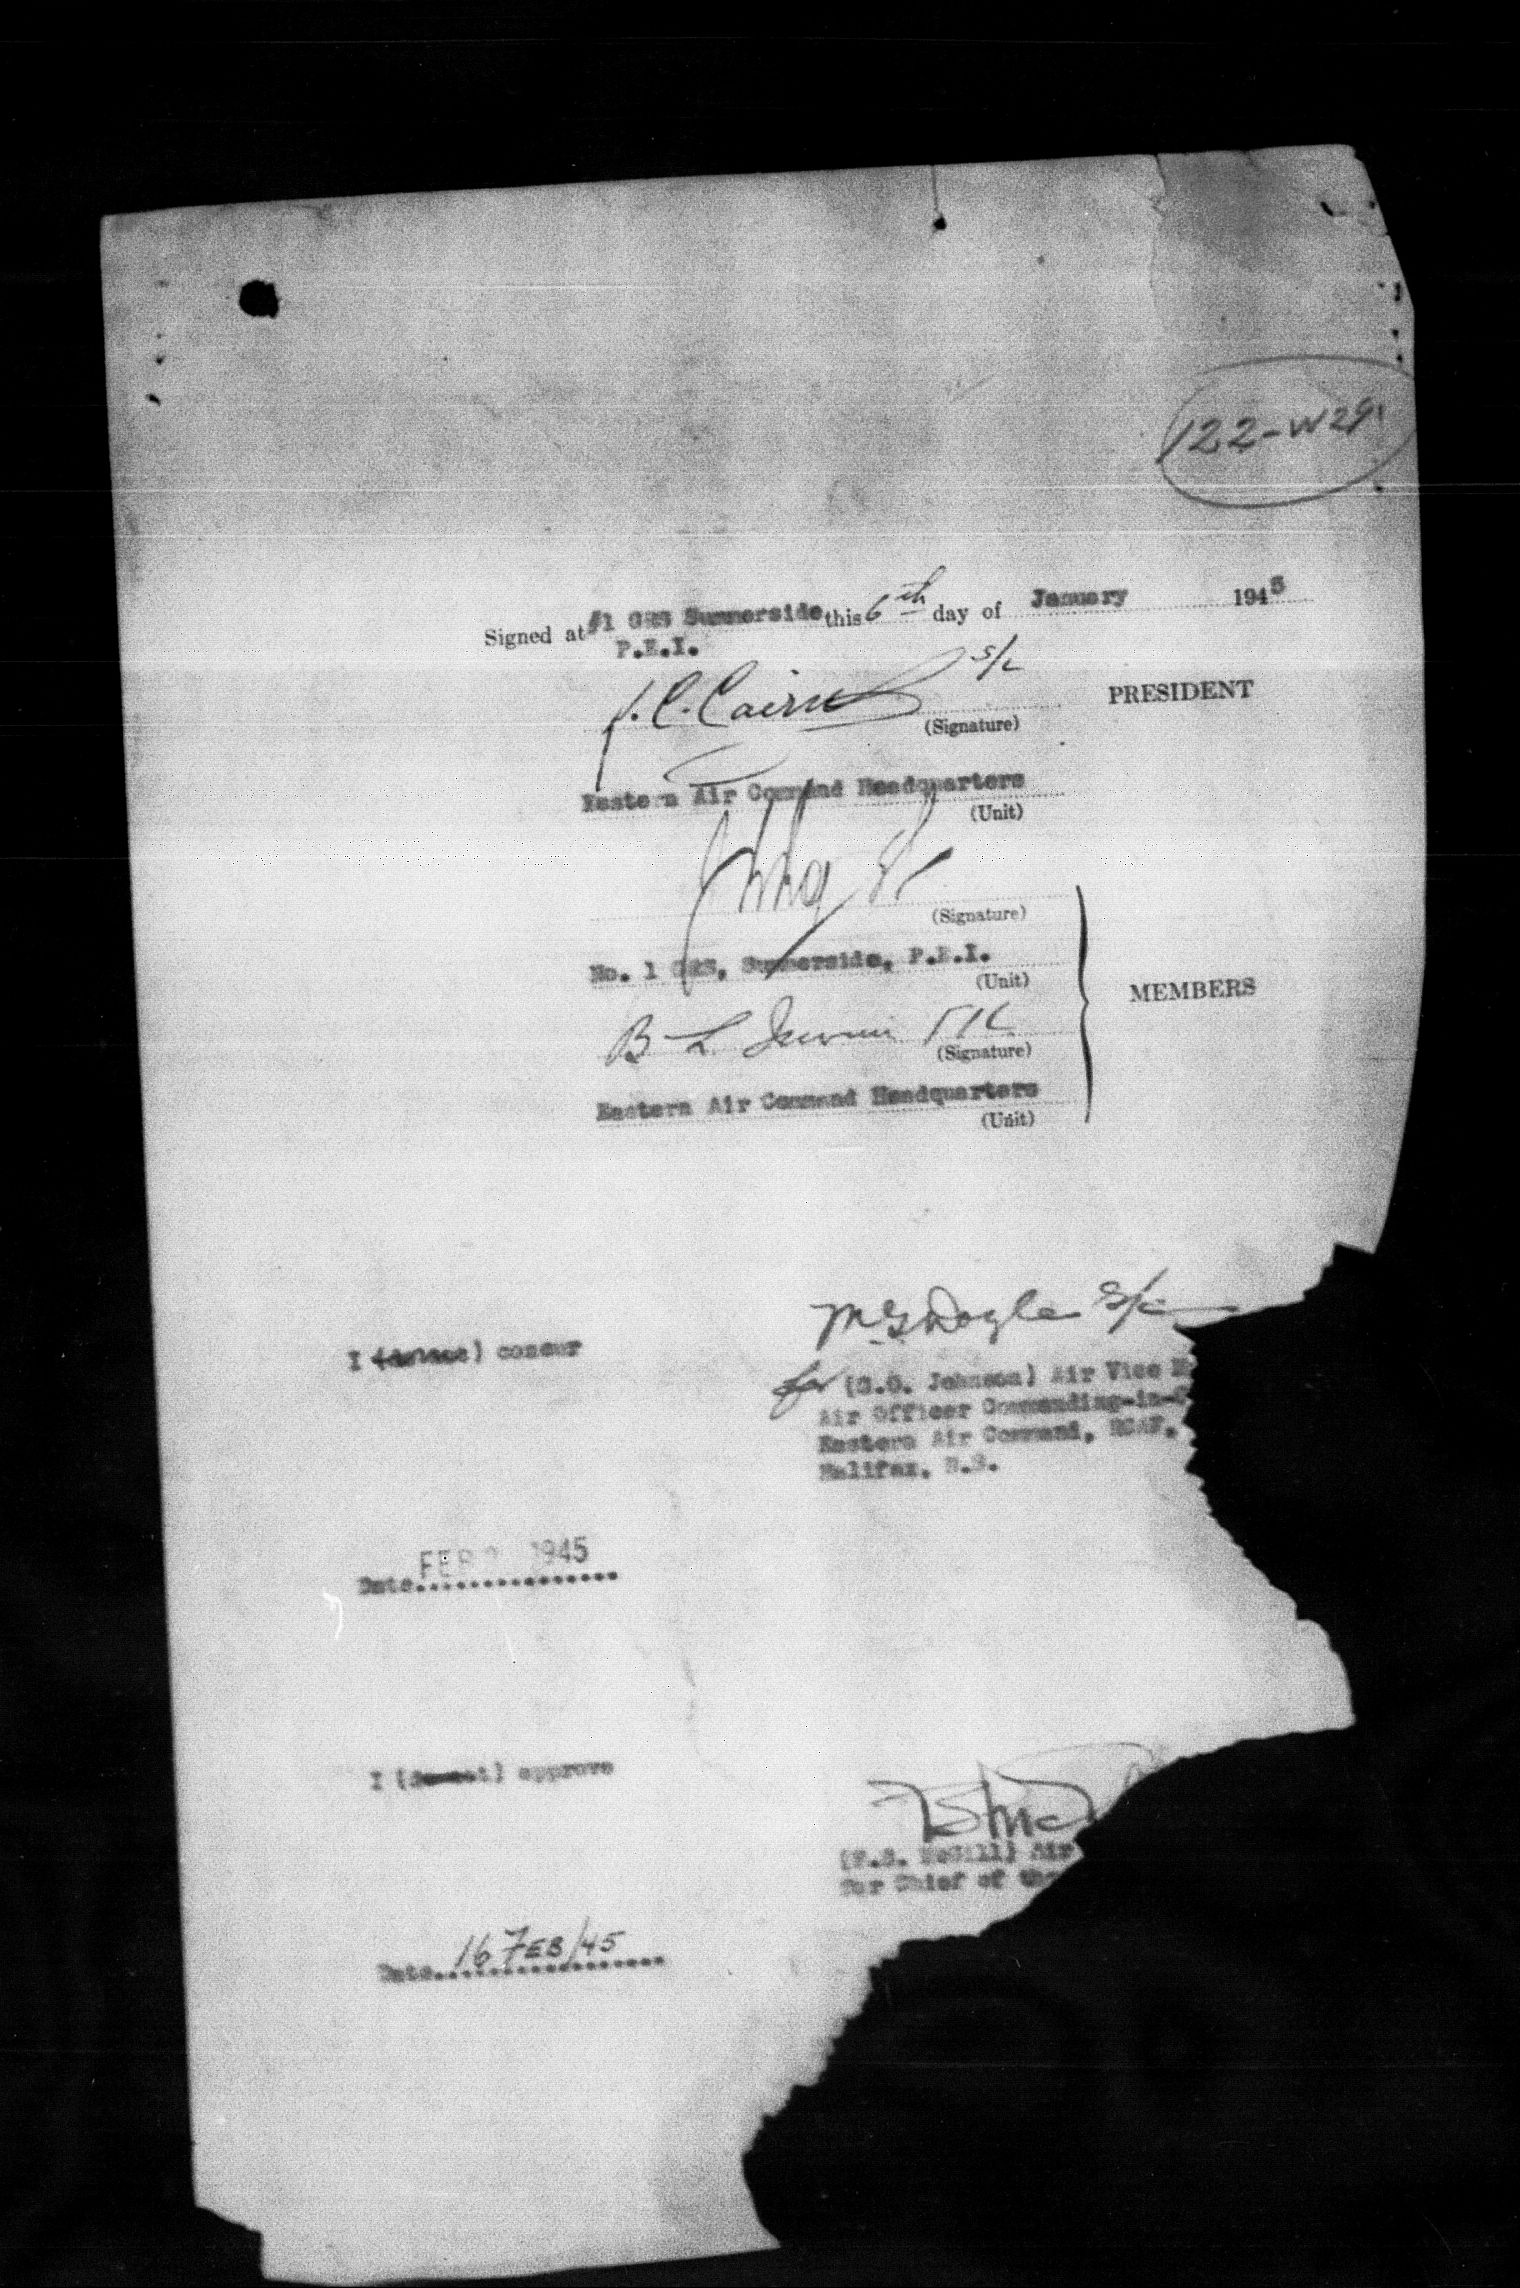 122-W29
Signed at #1 GRS Summerside this 6th day of January 1945
P.E.I.
J. C. Cairns S/L
(Signature)
PRESIDENT
Eastern Air Command Headquarters
(Unit)
(Signature)
No. 1 GRS, Summerside, P.E.I.
(Unit)
MEMBERS
B L F/L
(Signature)
Eastern Air Command Headquarters
(Unit)
M G Doyle
I (do not) concur
for (G.O. Johnson) Air Vice M
Air Officer Commanding-in-C
Eastern Air Command, RCAF,
Halifax, N.S.
FEB 1945
Date................
I (do not) approve
(F.S. McGill) Air
for Chief of the
16 FEB/45
Date..................